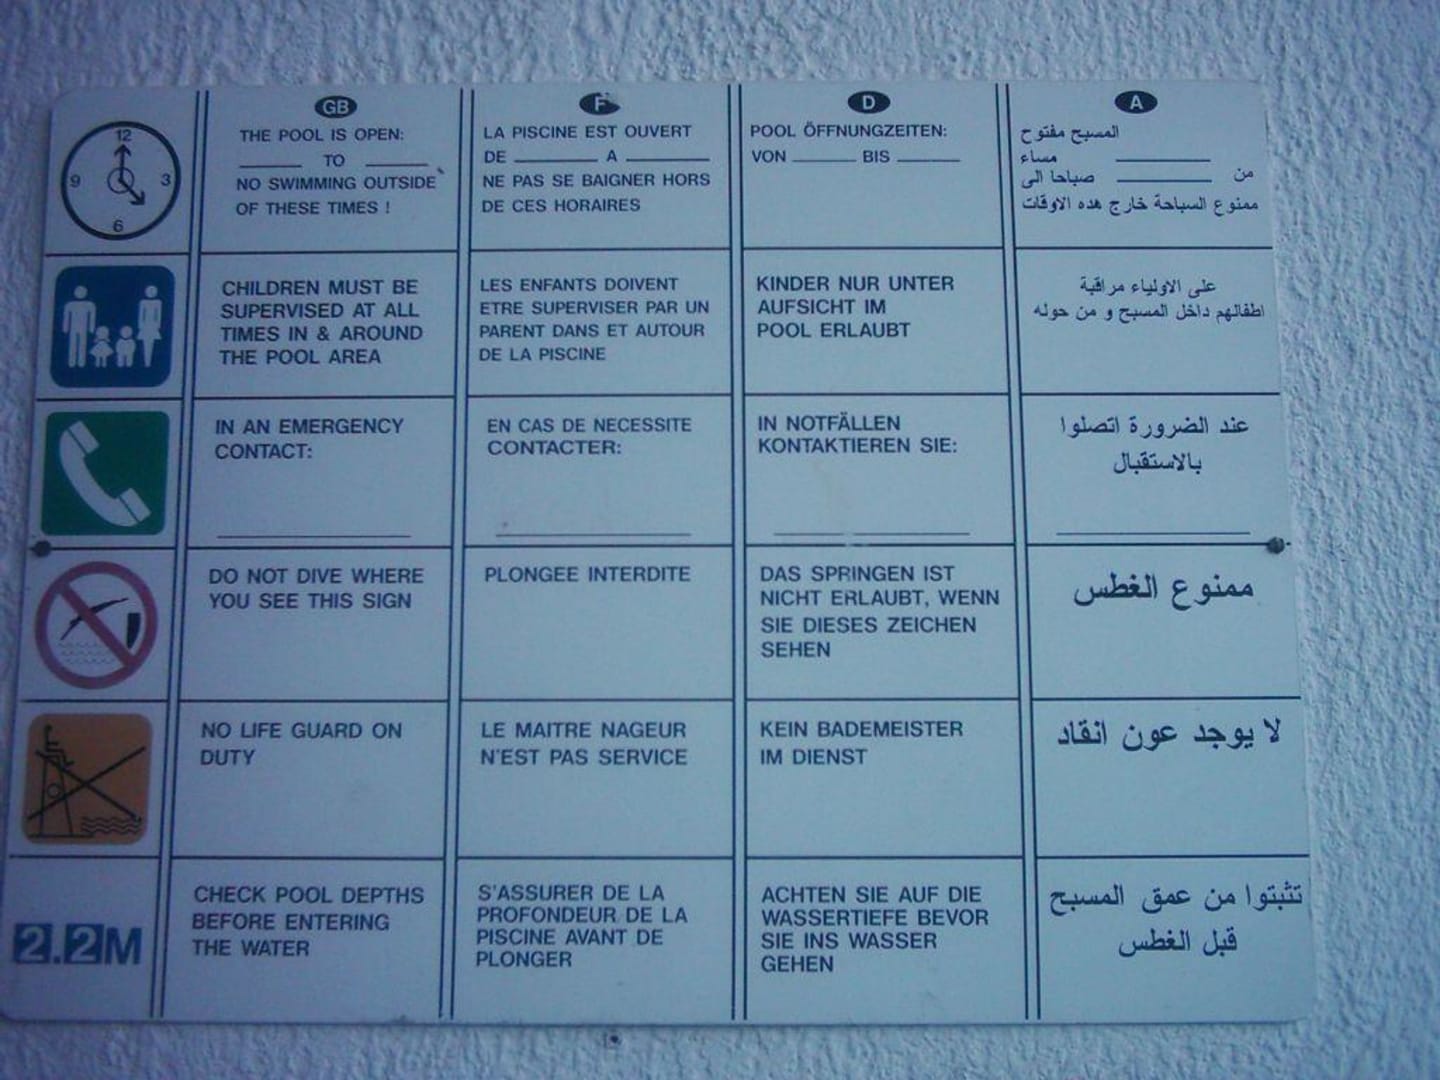 GB
F
D
A
12
9
3
6
THE POOL IS OPEN:
_____ TO _____
NO SWIMMING OUTSIDE
OF THESE TIMES !
LA PISCINE EST OUVERT
DE _____ A _____
NE PAS SE BAIGNER HORS
DE CES HORAIRES
POOL ÖFFNUNGZEITEN:
VON _____ BIS _____
المسبح مفتوح
_____ مساء
من _____ صباحا الى
ممنوع السباحة خارج هده الاوقات
CHILDREN MUST BE
SUPERVISED AT ALL
TIMES IN & AROUND
THE POOL AREA
LES ENFANTS DOIVENT
ETRE SUPERVISER PAR UN
PARENT DANS ET AUTOUR
DE LA PISCINE
KINDER NUR UNTER
AUFSICHT IM
POOL ERLAUBT
على الاولياء مراقبة
اطفالهم داخل المسبح و من حوله
IN AN EMERGENCY
CONTACT:
EN CAS DE NECESSITE
CONTACTER:
IN NOTFÄLLEN
KONTAKTIEREN SIE:
عند الضرورة اتصلوا
بالاستقبال
DO NOT DIVE WHERE
YOU SEE THIS SIGN
PLONGEE INTERDITE
DAS SPRINGEN IST
NICHT ERLAUBT, WENN
SIE DIESES ZEICHEN
SEHEN
ممنوع الغطس
NO LIFE GUARD ON
DUTY
LE MAITRE NAGEUR
N'EST PAS SERVICE
KEIN BADEMEISTER
IM DIENST
لا يوجد عون انقاد
2.2M
CHECK POOL DEPTHS
BEFORE ENTERING
THE WATER
S'ASSURER DE LA
PROFONDEUR DE LA
PISCINE AVANT DE
PLONGER
ACHTEN SIE AUF DIE
WASSERTIEFE BEVOR
SIE INS WASSER
GEHEN
تثبتوا من عمق المسبح
قبل الغطس